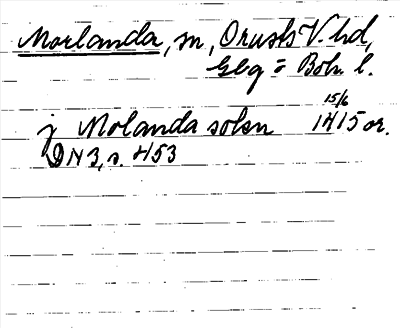 Morlanda, sn, Orusts V. hd,
Gbg o Boh. l.
j Molanda sokn 15/6 1415 or.
DN 3, s. 453